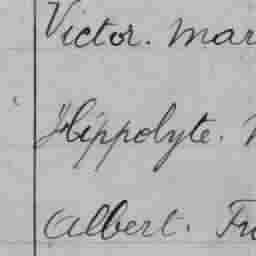 Victor. Mar
Hippolyte.
Albert. Fr